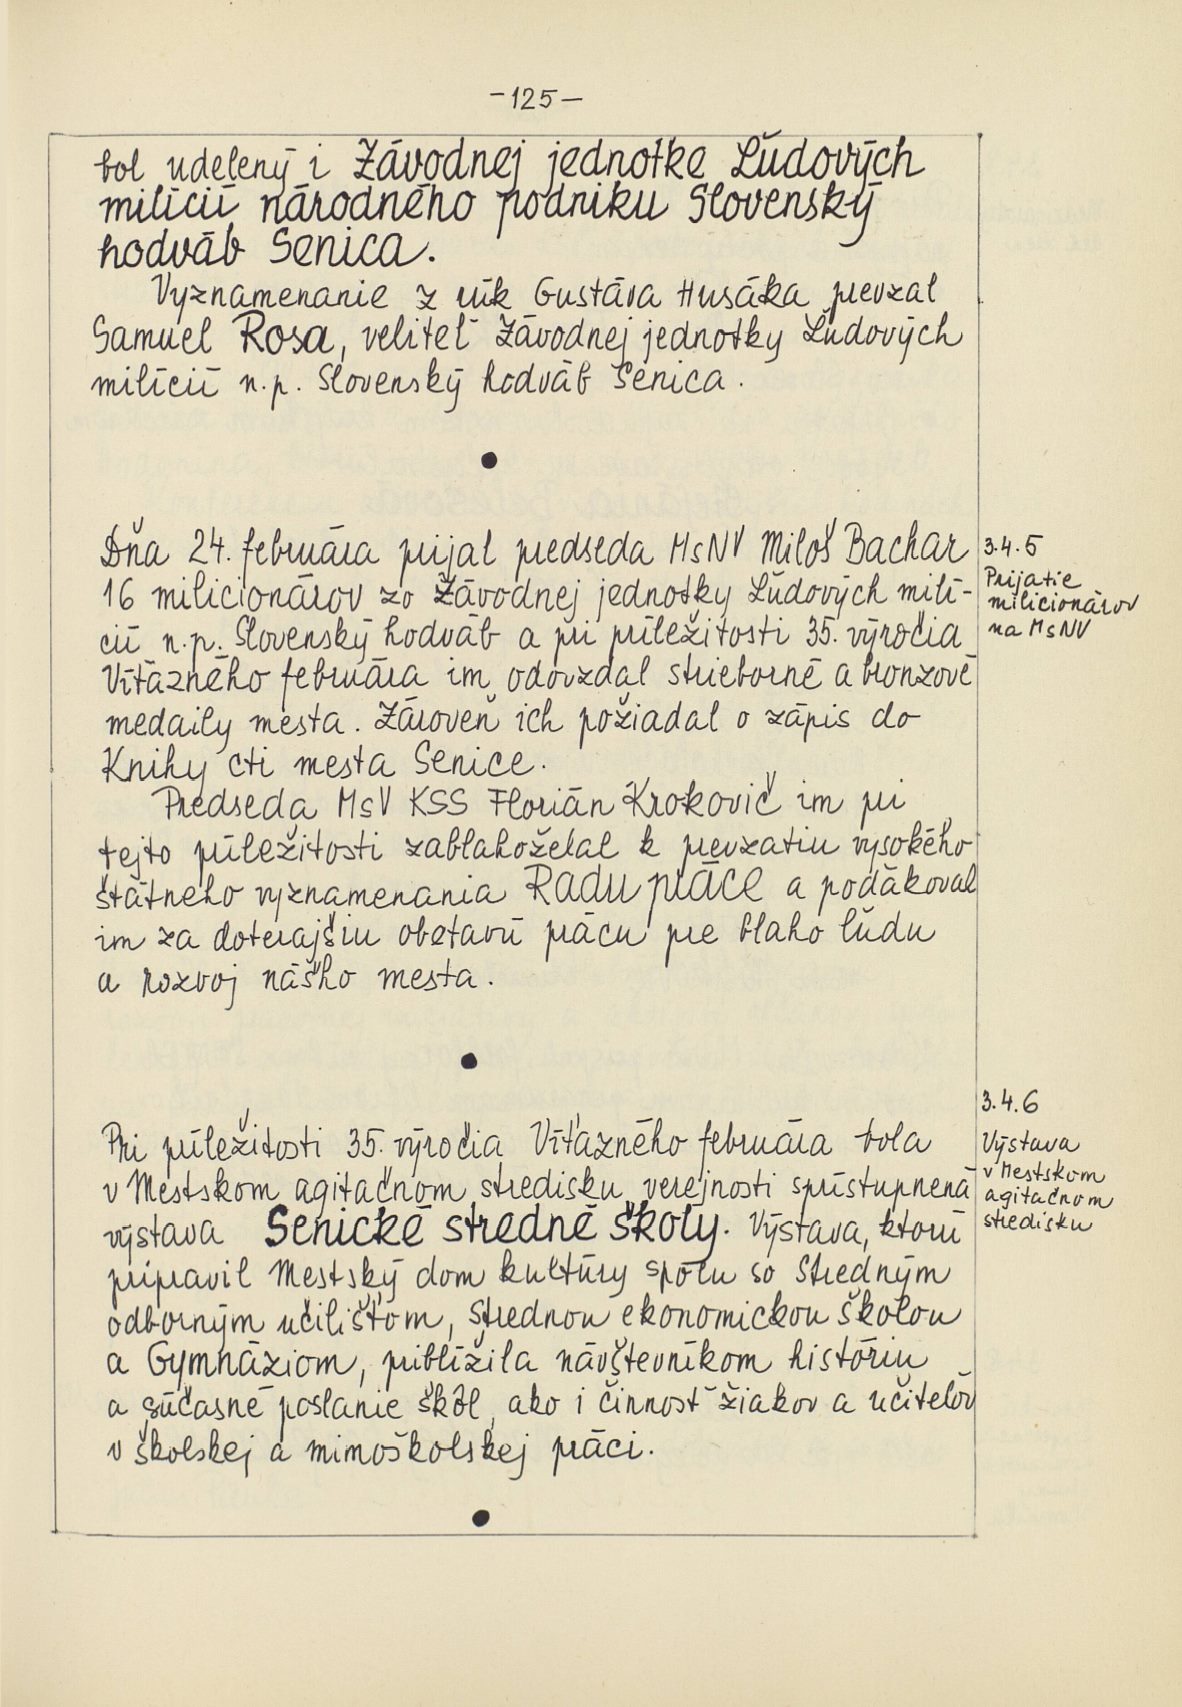 -125-
bol udelený i Závodnej jednotke Ľudových
milícií národného podniku Slovenský
hodváb Senica.
Vyznamenanie z rúk Gustáva Husáka prevzal
Samuel Rosa, veliteľ Závodnej jednotky Ľudových
milícií n.p. Slovenský hodváb Senica.
●
Dňa 24. februára prijal predseda MsNV Miloš Bachar
16 milicionárov zo Závodnej jednotky Ľudových milí-
cií n.p. Slovenský hodváb a pri príležitosti 35. výročia
Víťazného februára im odovzdal strieborné a bronzové
medaily mesta. Zároveň ich požiadal o zápis do
Knihy cti mesta Senice.
Predseda MsV KSS Florián Krokovič im pri
tejto príležitosti zablahoželal k prevzatiu vysokého
štátneho vyznamenania Radu práce a poďakoval
im za doterajšiu obetavú prácu pre blaho ľudu
a rozvoj nášho mesta.
●
Pri príležitosti 35. výročia Víťazného februára bola
v Mestskom agitačnom stredisku verejnosti sprístupnená
výstava Senické stredné školy. Výstava, ktorú
pripravil Mestský dom kultúry spolu so Stredným
odborným učilišťom, Strednou ekonomickou školou
a Gymnáziom, priblížila návštevníkom históriu
a súčasné poslanie škôl, ako i činnosť žiakov a učiteľov
v školskej a mimoškolskej práci.
●
3.4.5
Prijatie
milicionárov
na MsNV
3.4.6
Výstava
v Mestskom
agitačnom
stredisku